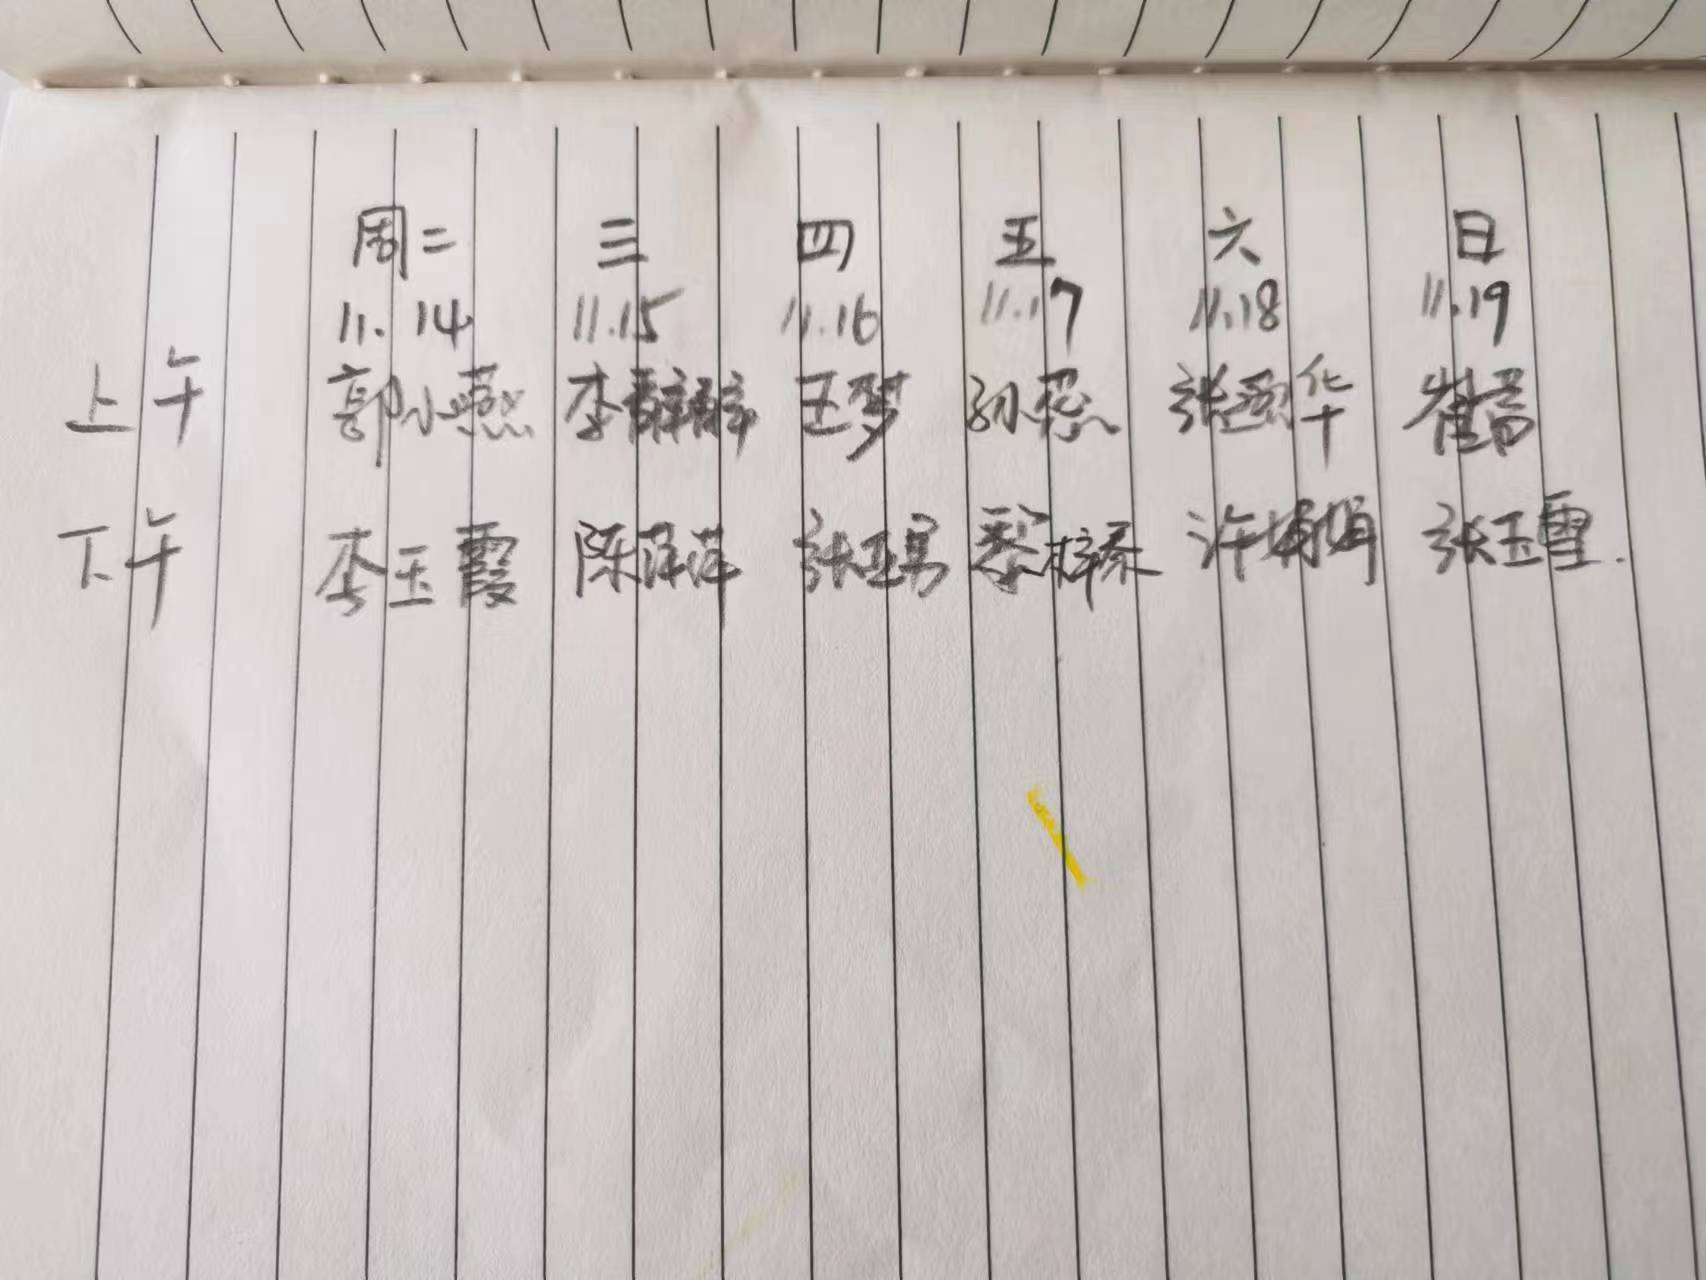 周二 三 四 五 六 日
11.14 11.15 11.16 11.17 11.18 11.19
上午 郭小燕 李 王梦 孙 张 华 崔
下午 李玉霞 陈萍萍 张亚男 黎梓 许娟娟 张玉雪.